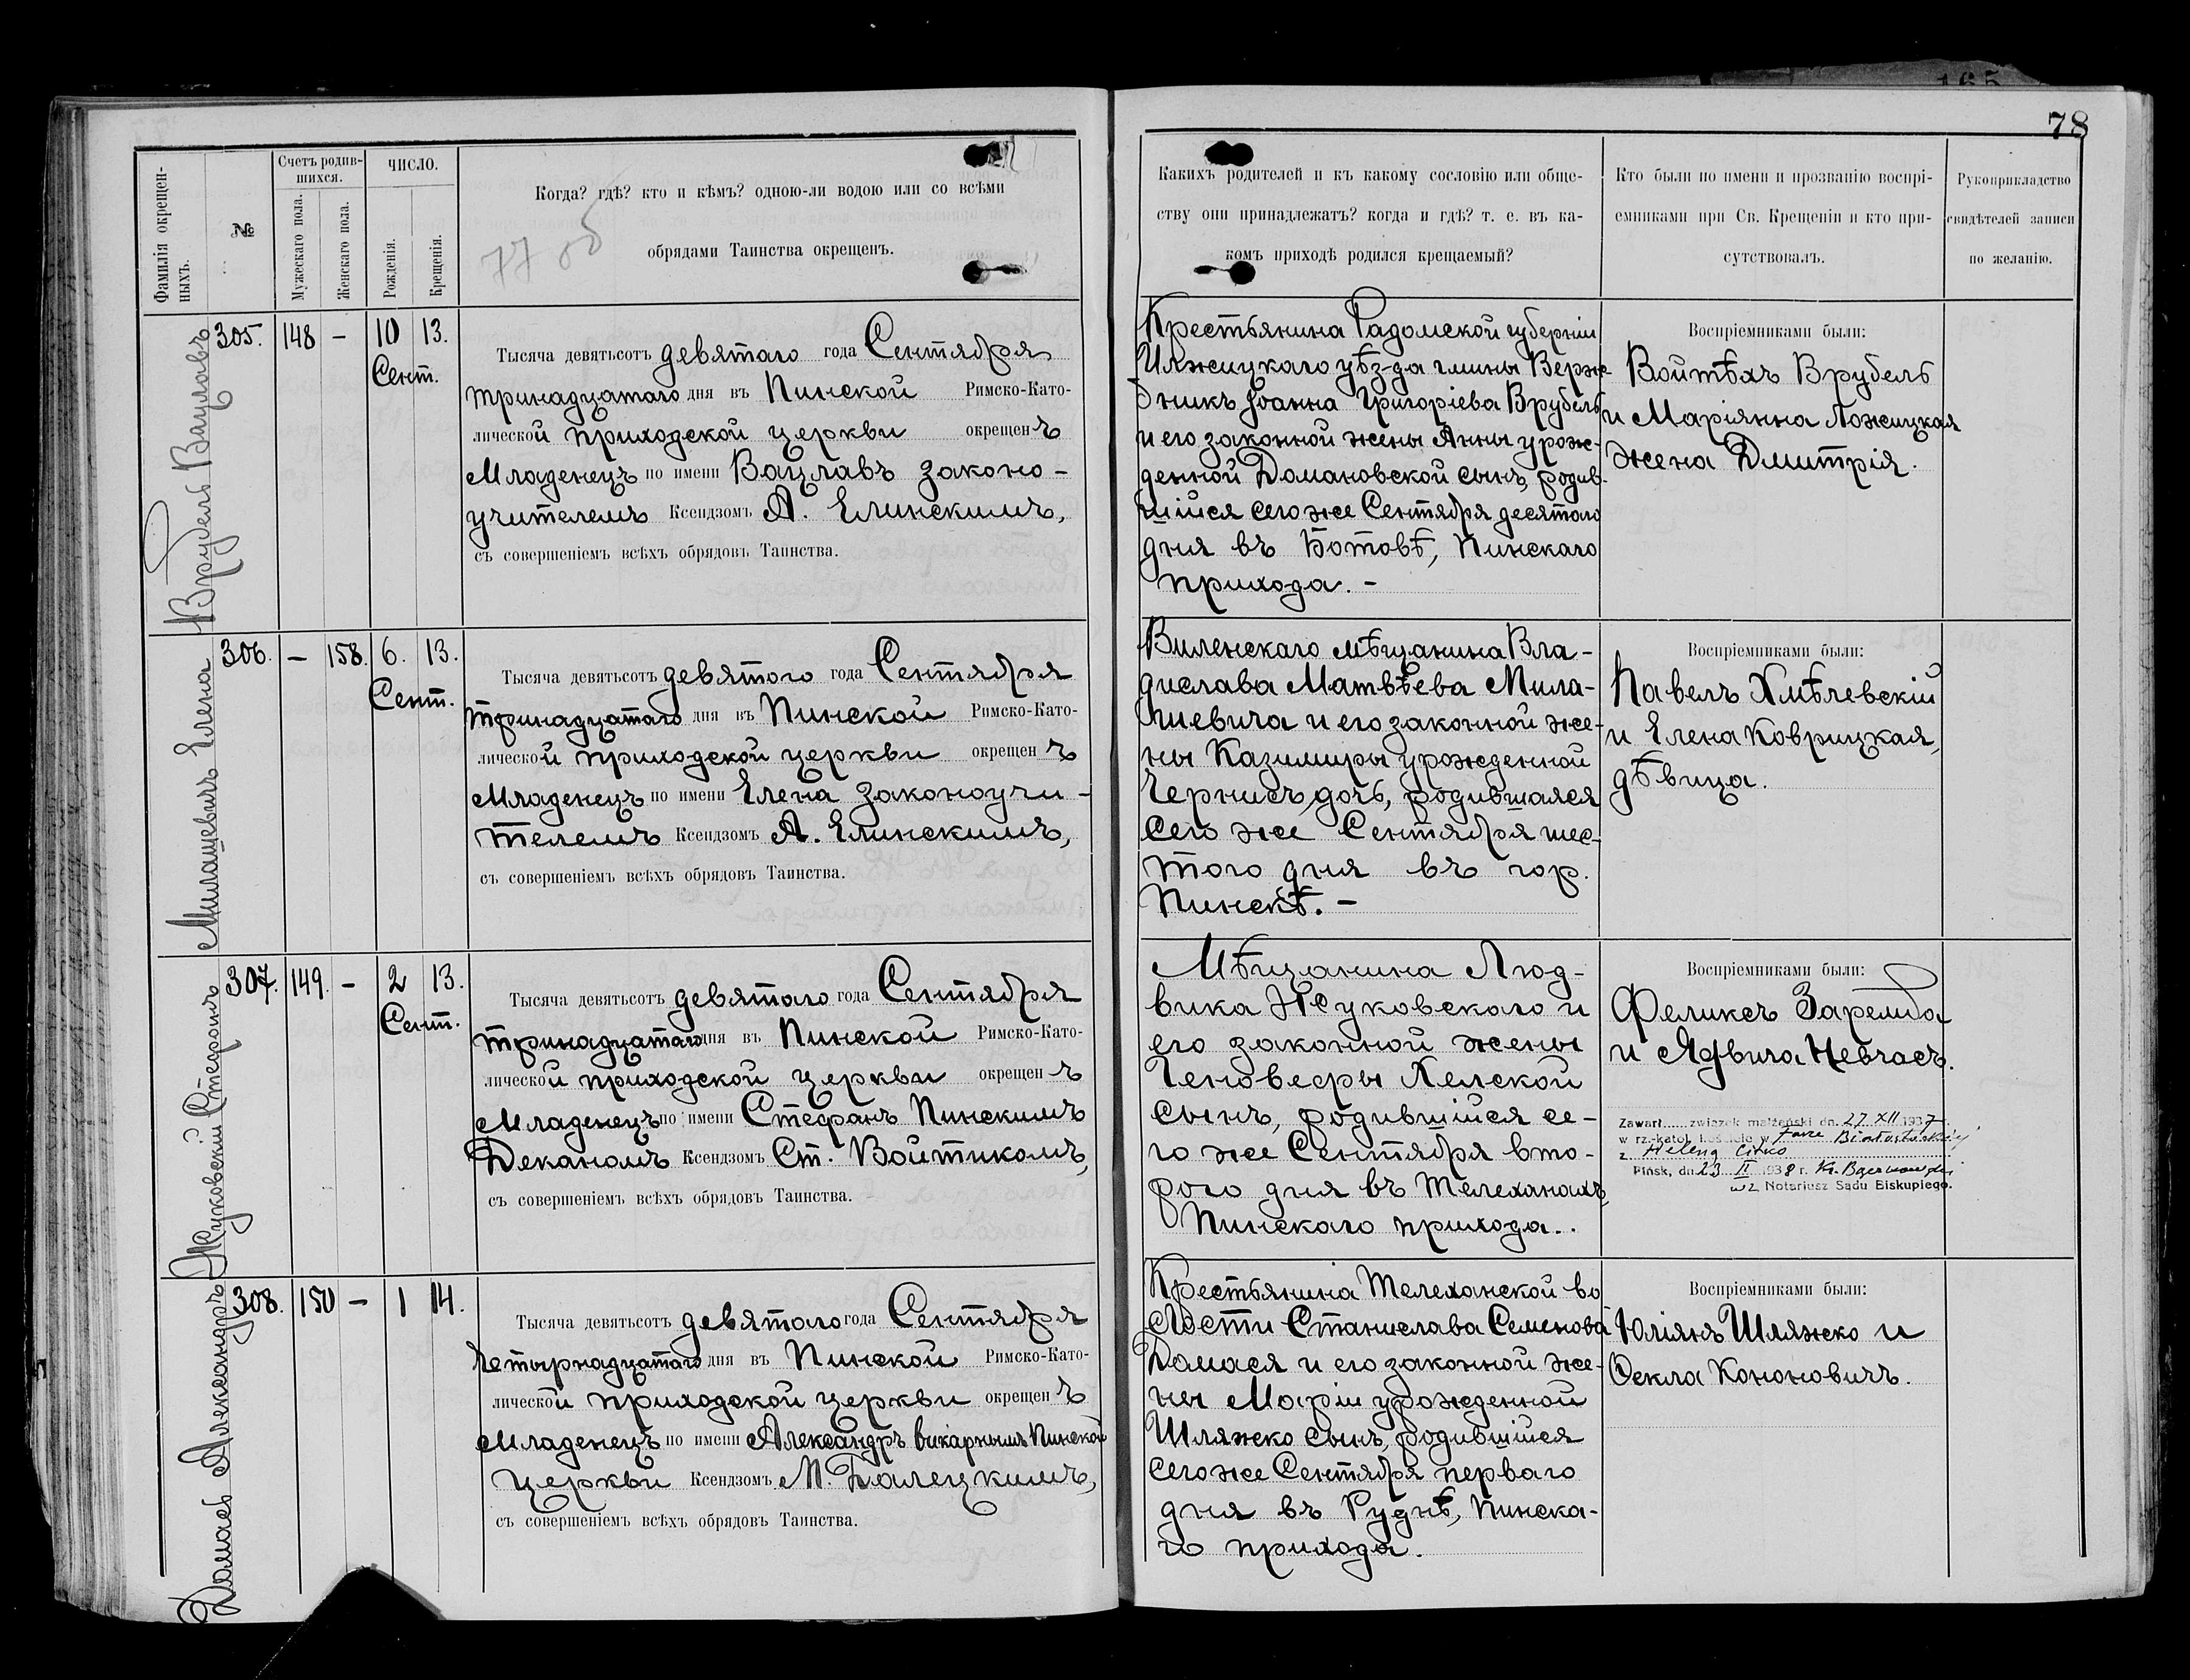 165
78
Фамилія окрещен-
ныхъ.
№
Счетъ родив-
шихся.
Мужескаго пола.
Женскаго пола.
ЧИСЛО.
Рожденія.
Крещенія.
Когда? гдѣ? кто и кѣмъ? одною-ли водою или со всѣми
обрядами Таинства окрещенъ.
77 об
Какихъ родителей и къ какому сословію или обще-
ству они принадлежатъ? когда и гдѣ? т. е. въ ка-
комъ приходѣ родился крещаемый?
Кто были по имени и прозванію воспрі-
емниками при Св. Крещеніи и кто при-
сутствовалъ.
Рукоприкладство
свидѣтелей записи
по желанію.
Врубель Вацлавъ
305. 148 – 10 13.
Сент.
Тысяча девятьсотъ девятаго года Сентября
тринадцатаго дня въ Пинской Римско-Като-
лической приходской церкви окрещенъ
Младенецъ по имени Вацлавъ законо-
учителемъ Ксендзомъ А. Елинскимъ,
съ совершеніемъ всѣхъ обрядовъ Таинства.
Крестьянина Радомской губерніи
Илжицкаго уѣз-да гмины Верж
бникъ Іоанна Григоріева Врубель
и его законной жены Анны урож-
денной Домановской сынъ, родив-
шійся сего же Сентября десятаго
дня въ Ботовѣ, Пинскаго
прихода. –
Воспріемниками были:
Войтѣхъ Врубель
и Маріянна Ложицкая
жена Дмитрія.
Милашевичъ Елена
306. – 158. 6. 13.
Сент.
Тысяча девятьсотъ девятого года Сентября
тринадцатаго дня въ Пинской Римско-Като-
лической приходской церкви окрещенъ
Младенецъ по имени Елена законоучи-
телемъ Ксендзомъ А. Елинскимъ,
съ совершеніемъ всѣхъ обрядовъ Таинства.
Виленскаго мѣщанина Вла-
дислава Матвѣева Мила-
шевича и его законной же-
ны Казимиры урожденной
Чернисъ дочь, родившаяся
сего же Сентября шес-
того дня въ гор.
Пинскѣ. –
Воспріемниками были:
Павелъ Хмѣлевскій
и Елена Коврицкая,
дѣвица.
Жуковскій Стефанъ
307. 149. – 2 13.
Сент.
Тысяча девятьсотъ девятаго года Сентября
тринадцатаго дня въ Пинской Римско-Като-
лической приходской церкви окрещенъ
Младенецъ по имени Стефанъ Пинскимъ
Деканомъ Ксендзомъ Ст. Войтикомъ,
съ совершеніемъ всѣхъ обрядовъ Таинства.
Мѣщанина Люд-
вика Жуковскаго и
его законной жены
Геновефы Хелской
сынъ, родившійся се-
го же Сентября вто-
рого дня въ Телеханахъ,
Пинскаго прихода..
Воспріемниками были:
Феликсъ Заремба
и Ядвига Невчасъ.
Zawarł..... związek małżeński dn. 27 XII 1937
w rz.-katol. kościele w Farze Białostockiej
z Heleną Citko
Pińsk, dn 23 II 1938 r.
wz Notariusz Sądu Biskupiego.
Домась Александръ
308. 150 – 1 14.
Тысяча девятьсотъ девятаго года Сентября
четырнадцатаго дня въ Пинской Римско-Като-
лической приходской церкви окрещенъ
Младенецъ по имени Александръ викарнымъ Пинской
церкви Ксендзомъ М. Балецкимъ,
съ совершеніемъ всѣхъ обрядовъ Таинства.
Крестьянина Телеханской во
лости Станислава Семенова
Домася и его законной же-
ны Маріи урожденной
Шляжко сынъ, родившійся
сего же Сентября перваго
дня въ Руднѣ, Пинска-
го прихода.
Воспріемниками были:
Юліянъ Шляжко и
Фекла Кононовичъ.